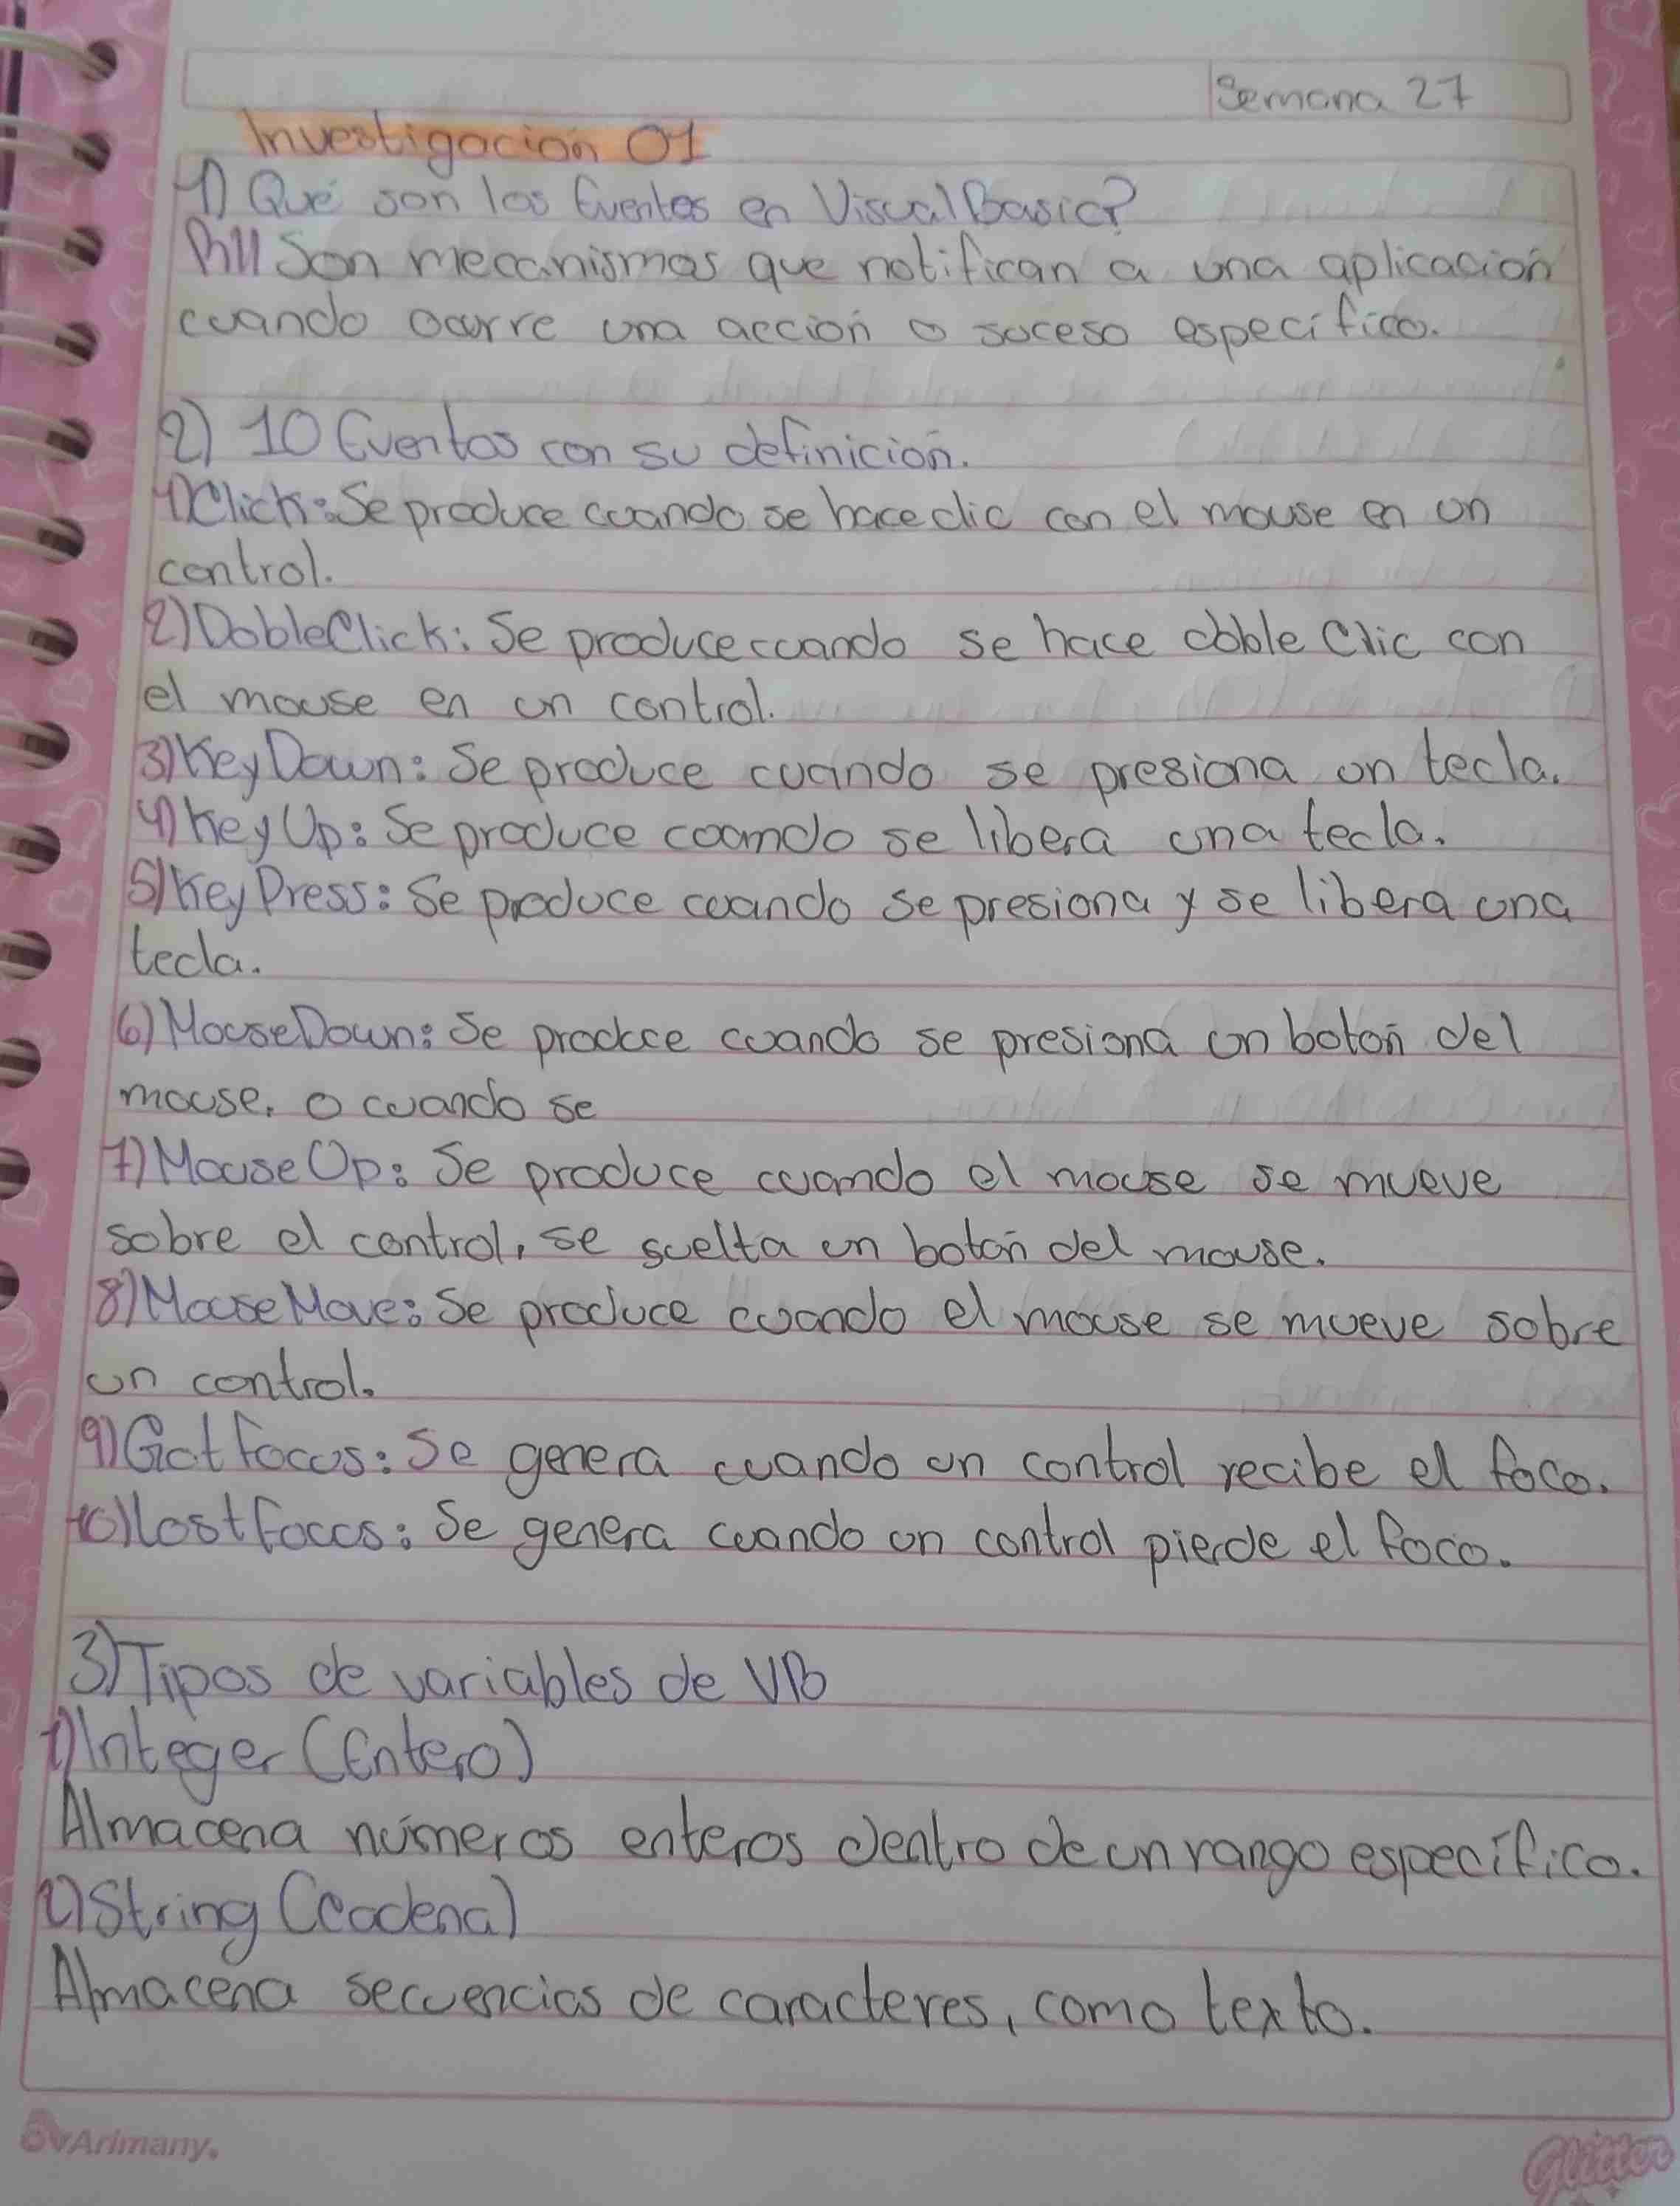 Semana 27
Investigación 01
1) Qué son los Eventos en Visual Basic?
R// Son mecanismos que notifican a una aplicación
cuando ocurre una acción o suceso específico.
2) 10 Eventos con su definición.
1) Click: Se produce cuando se hace clic con el mouse en un
control.
2) DobleClick: Se produce cuando se hace doble Clic con
el mouse en un control.
3) KeyDown: Se produce cuando se presiona un tecla.
4) KeyUp: Se produce cuando se libera una tecla.
5) KeyPress: Se produce cuando se presiona y se libera una
tecla.
6) MouseDown: Se produce cuando se presiona un botón del
mouse. o cuando se
7) MouseUp: Se produce cuando el mouse se mueve
sobre el control, se suelta un botón del mouse.
8) MouseMove: Se produce cuando el mouse se mueve sobre
un control.
9) Gotfocus: Se genera cuando un control recibe el foco.
10) lostfocus: Se genera cuando un control pierde el foco.
3) Tipos de variables de VB
1) Integer (Entero)
Almacena números enteros dentro de un rango específico.
2) String (Cadena)
Almacena secuencias de caracteres, como texto.
Arimany.
Glitter